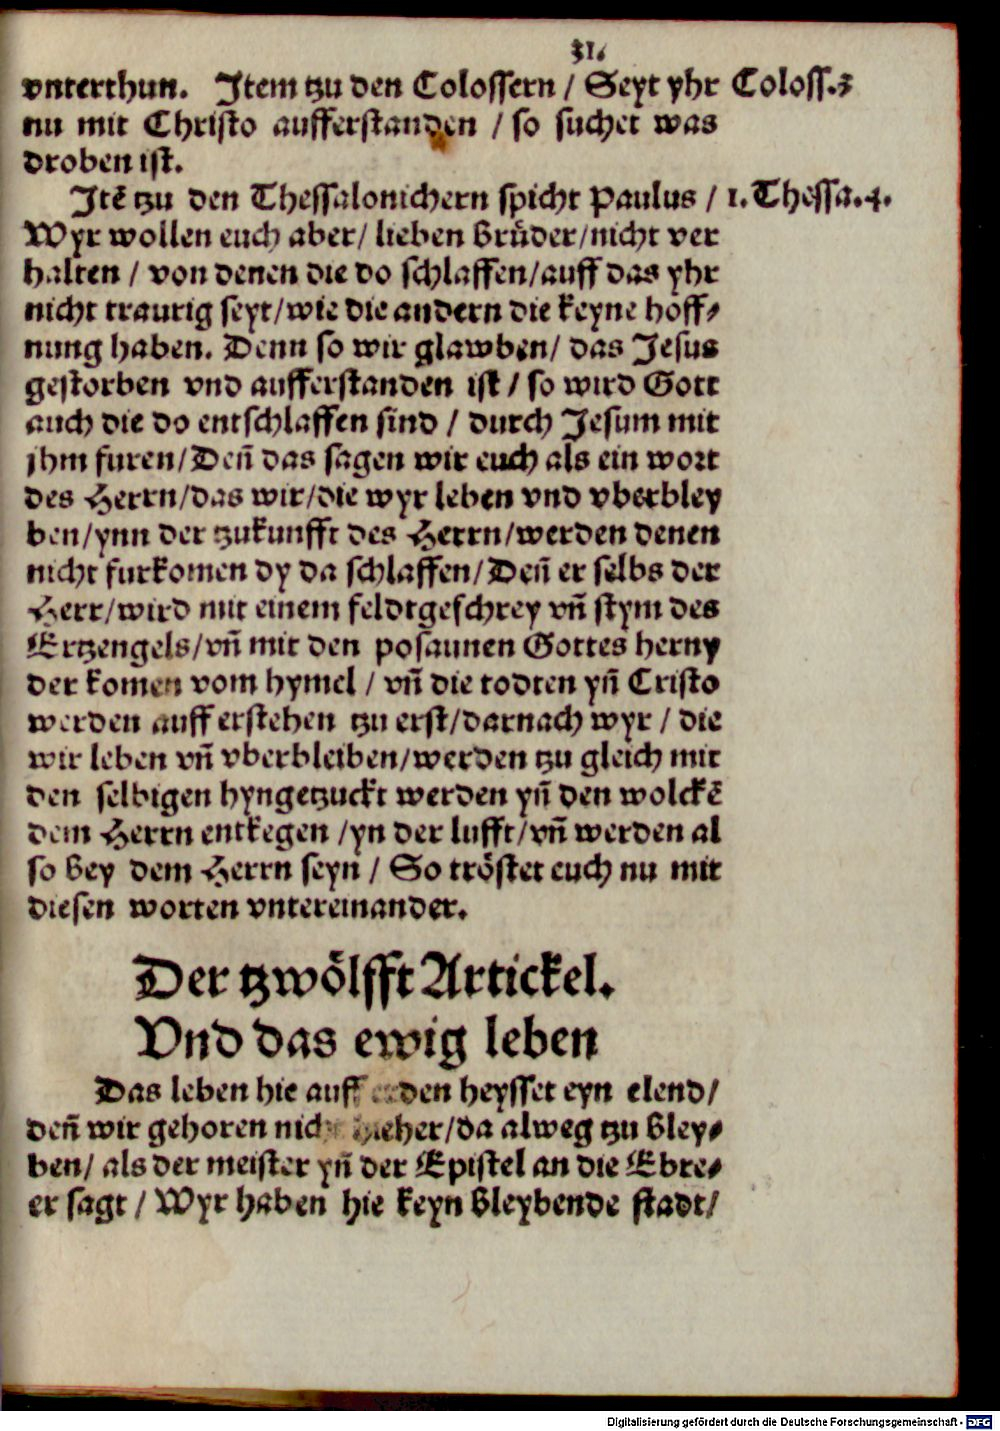 31.
vnterthun. Jtem tzu den Colossern / Seyt yhr Coloss.3
nu mit Christo aufferstanden / so suchet was
droben ist.
Jtē tzu den Thessalonichern spicht Paulus / 1. Thessa.4.
Wyr wollen euch aber/ lieben Brůder/nicht ver
halten / von denen die do schlaffen/auff das yhr
nicht traurig seyt/wie die andern die keyne hoff⸗
nung haben. Denn so wir glawben/ das Jesus
gestorben vnd aufferstanden ist / so wird Gott
auch die do entschlaffen sind / durch Jesum mit
jhm furen/Deñ das sagen wir euch als ein wort
des Herrn/das wir/die wyr leben vnd vberbley
ben/ynn der tzukunfft des Herrn/werden denen
nicht furkomen dy da schlaffen/Deñ er selbs der
Herr/wird mit einem feldtgeschrey vñ stym des
Ertzengels/vñ mit den posaunen Gottes herny
der komen vom hymel / vñ die todten yñ Cristo
werden auff erstehen tzu erst/darnach wyr / die
wir leben vñ vberbleiben/werden tzu gleich mit
den selbigen hyngetzuckt werden yñ den wolckē
dem Herrn entkegen /yn der lufft/vñ werden al
so bey dem Herrn seyn / So trôstet euch nu mit
diesen worten vntereinander.
Der tzwôlfft Artickel.
Vnd das ewig leben
Das leben hie auff erden heysset eyn elend/
deñ wir gehoren nicht hieher/da alweg tzu bley⸗
ben/ als der meister yñ der Epistel an die Ebre⸗
er sagt / Wyr haben hie keyn bleybende stadt/
Digitalisierung gefördert durch die Deutsche Forschungsgemeinschaft - DFG